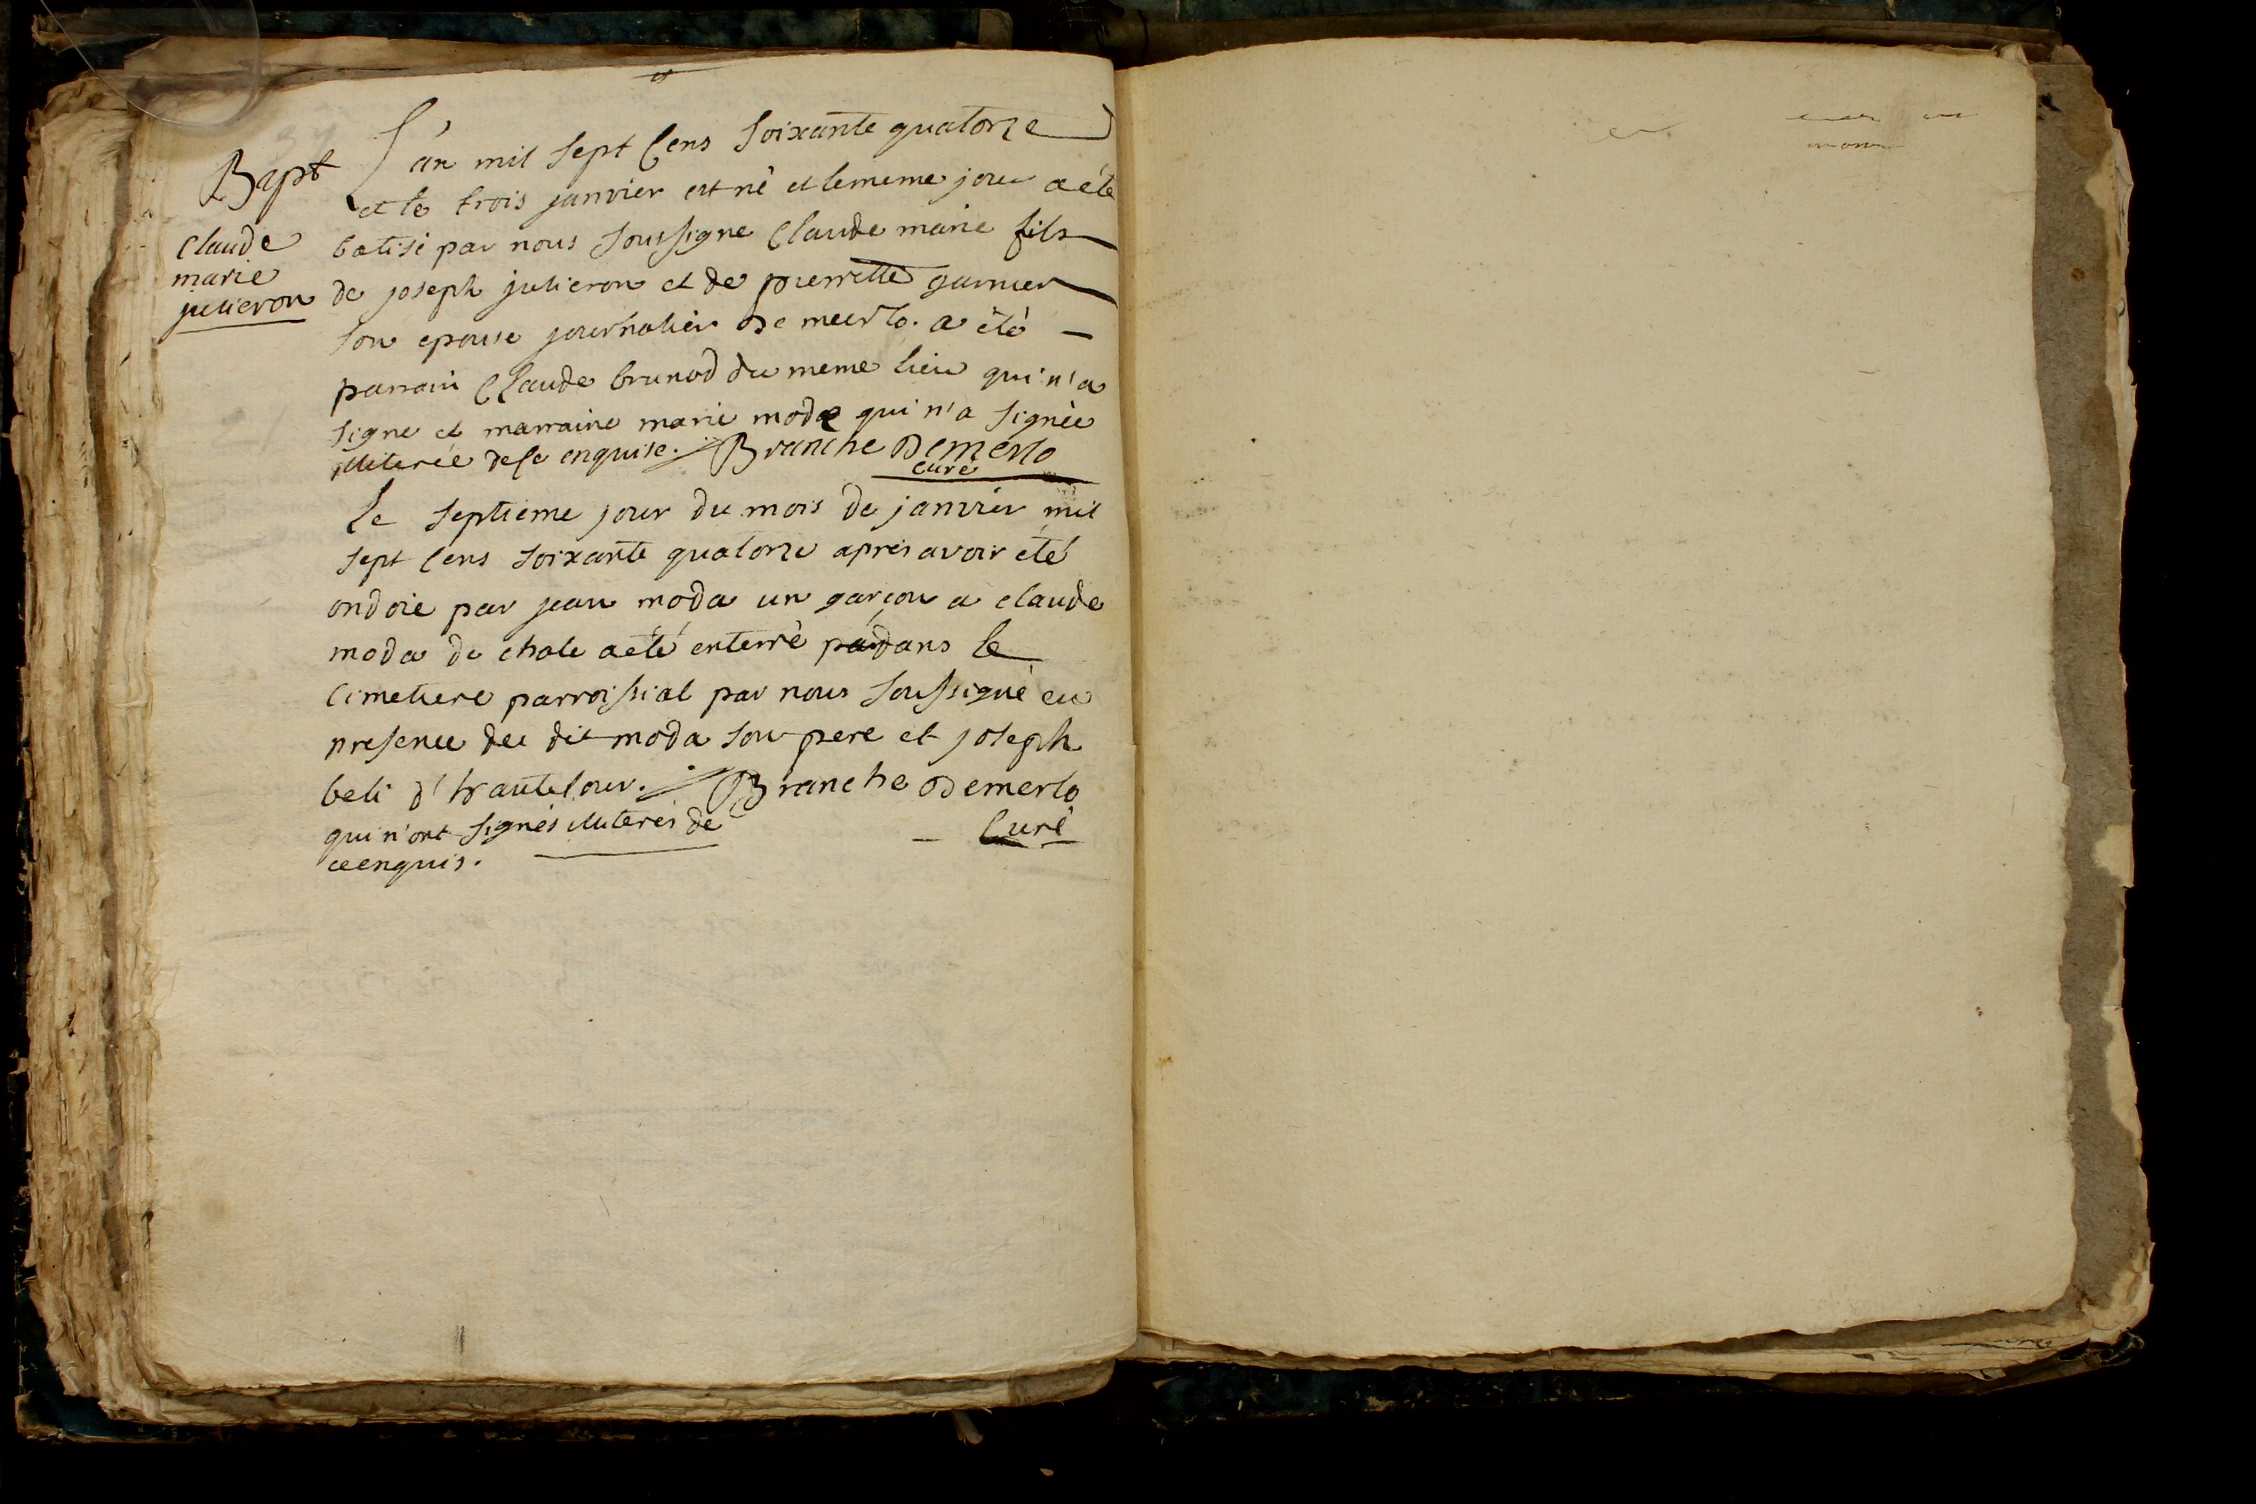 L'an mil sept Cens Soixante quatorze
Bapt
et le trois janvier est né et le meme jour a été
batisé par nous Soussigne Claude marie fils
Claude
marie
julieron
de joseph julieron et de pierrette garnier
son epouse journalier de meerlo. a été
parrain Claude brunod du meme lieu qui n'a
signe et marraine marie moda qui n'a signée
illiterée de ce enquise. Branche Demerlo
curé
Le septieme jour du mois de janvier mil
sept Cens soixante quatorze apres avoir été
ondoié par jean moda un garçon a claude
moda de chole a été enterré dans le
Cimetiere parroissial par nous soussigné en
presence du dit moda son pere et joseph
beli d'hautelour. Branche Demerlo
qui n'ont signés illiterés de
Curé
ce enquis.